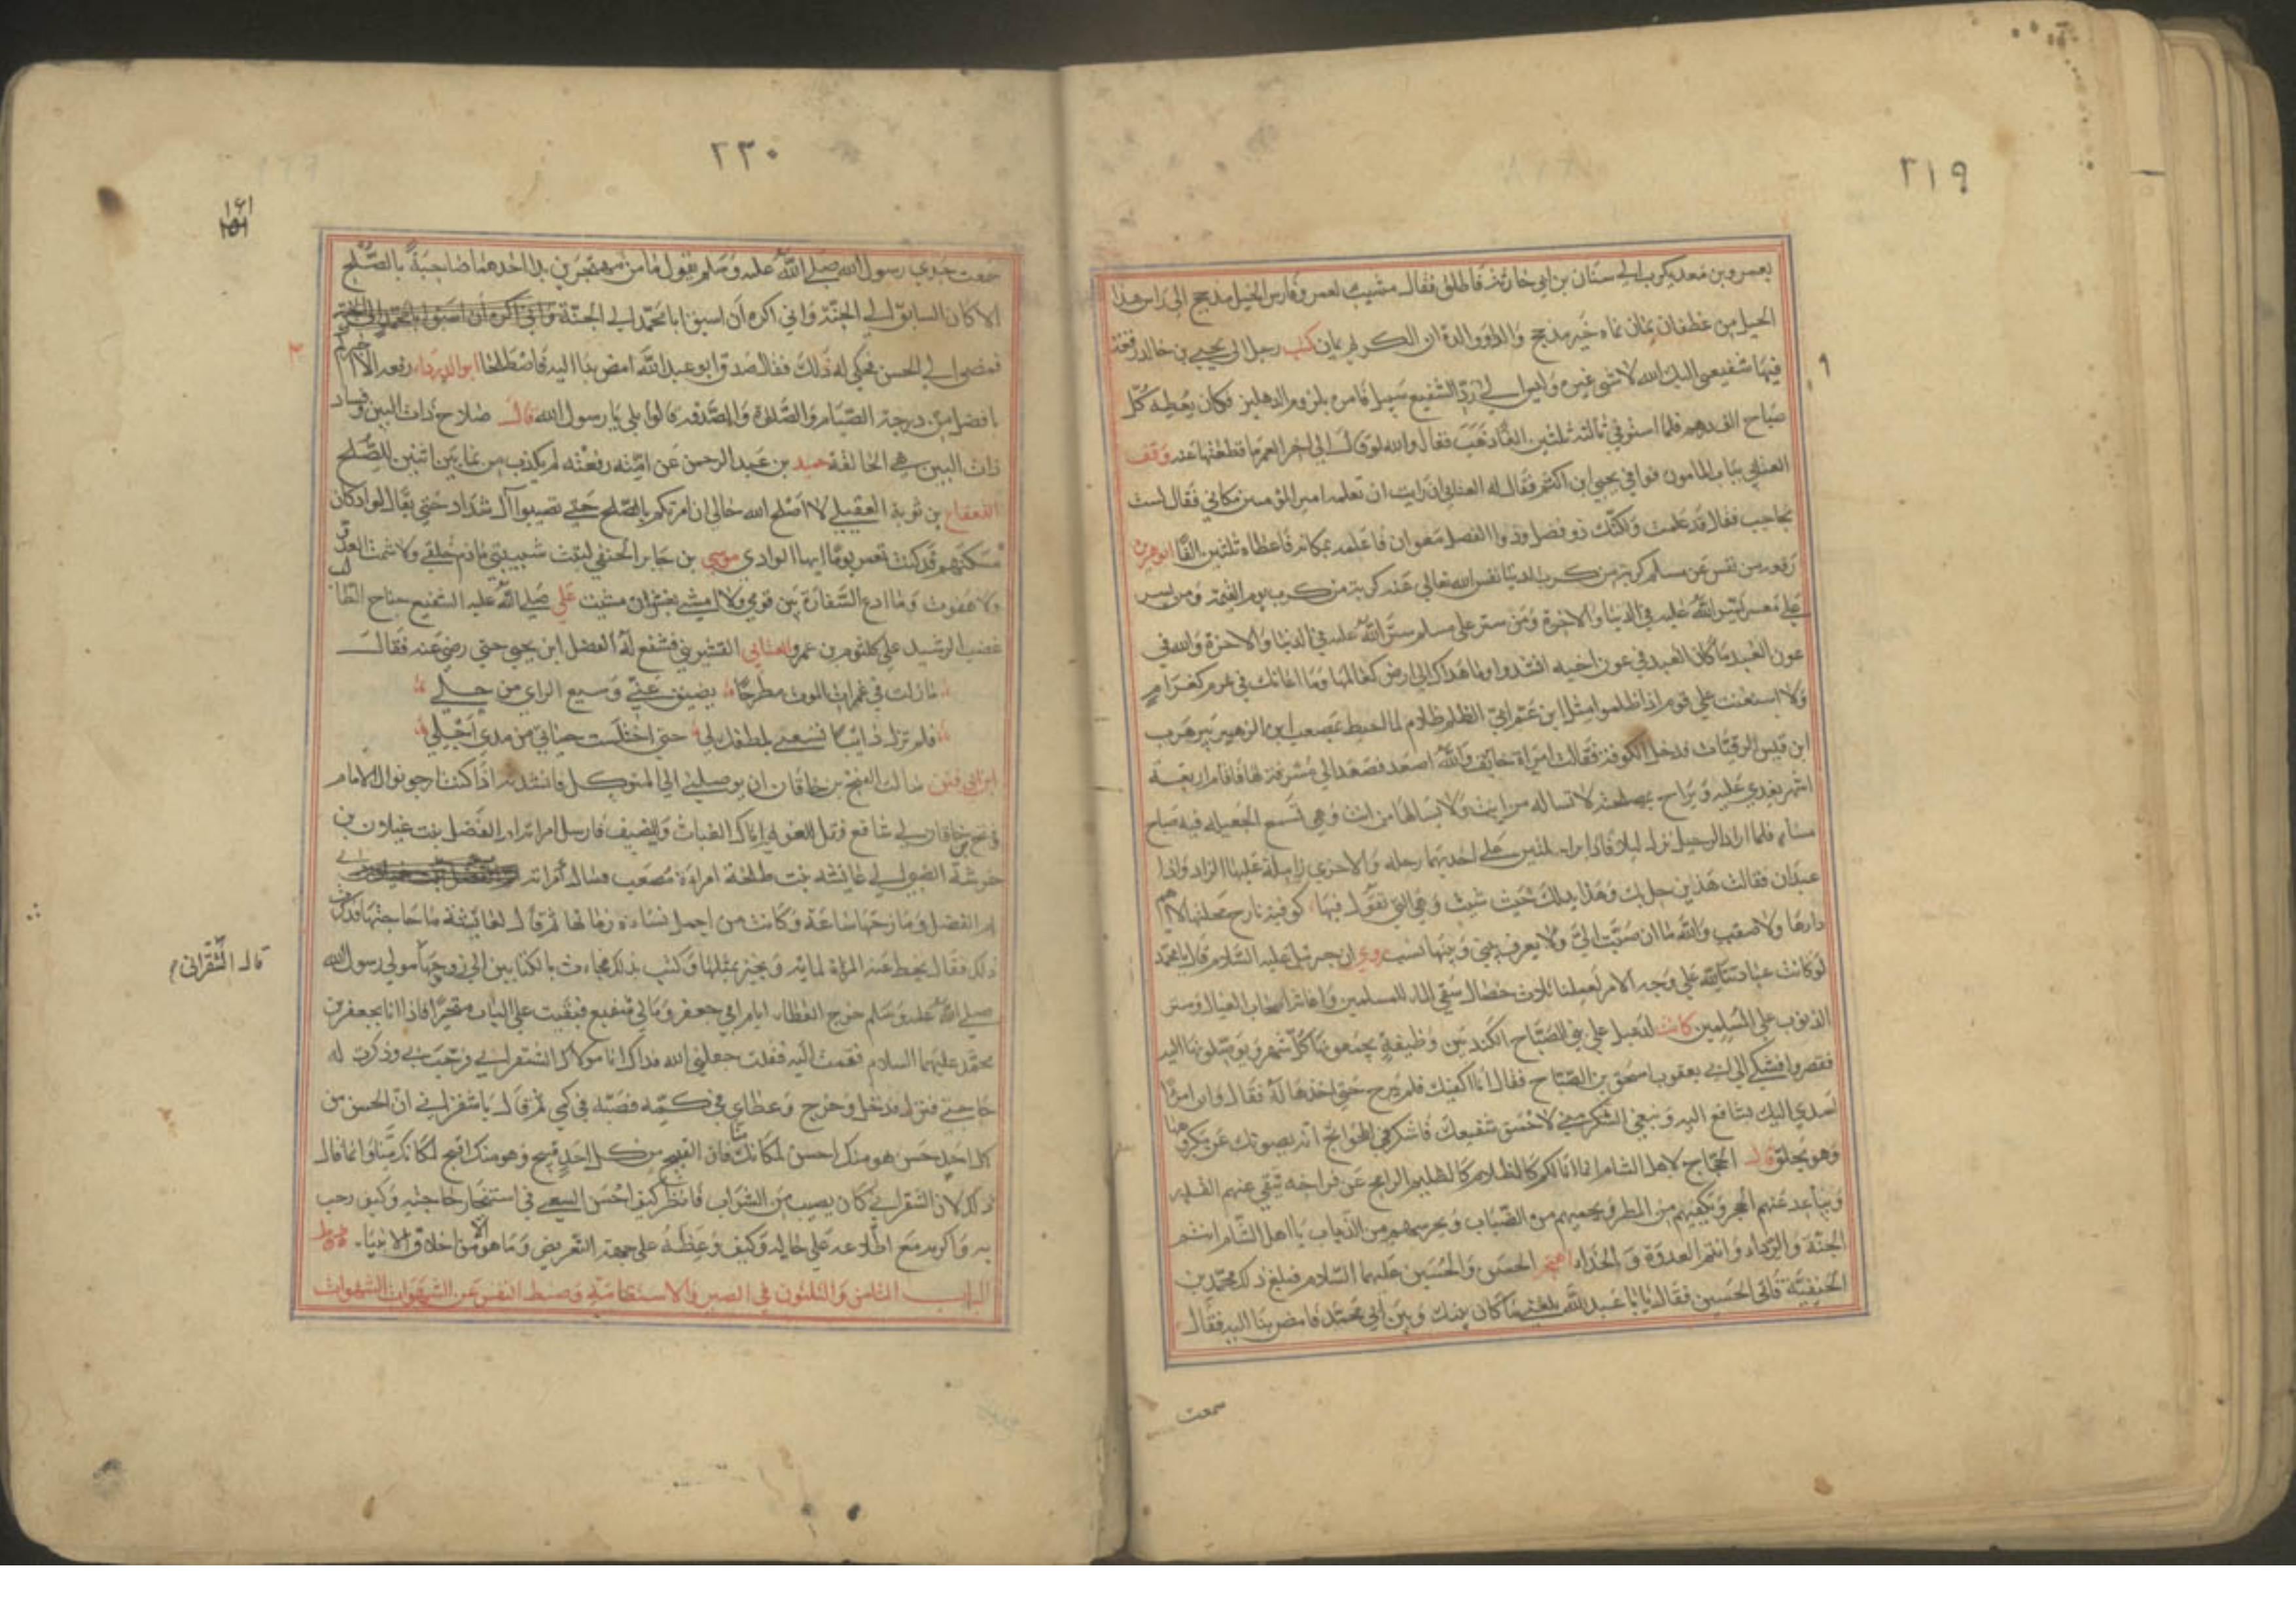 ٢١٩
بعمرو بن معديكرب الي سنان بن ابي حارثة فاطلق فقال مشيب لعمرو فارس الخيل مذحج الي راس هذا
الحيل من غطفان يمان نماه خير مذحج والدة ان الكر لم يمان كتب رجل الى يحيى بن خالد رقعة
فيها شفيعي اليك الله لا شي غيره وليس الي رد الشفيع سبيل فامره بلزوم الدهليز فكان يعطيه كل
صباح الف درهم فلما استوفي ثلثين الفا ذهب فقال والله لو الي اخر العمر ما قطعتها عنه وقف
العتابي بباب المامون فوافي يحيى ابن اكثم فقال له العتابي ان رايت ان تعلم امير المؤمنين مكاني فقال لست
بحاجب فقال قد علمت ولكنك ذو فضل وذوا الفضل معوان فاعلمه بمكانه فاعطاه ثلثين الفا ابو هريرة
رفعه من نفس عن مسلم كربة من كرب الدنيا نفس الله تعالي عنه كربة من كرب يوم القيمة ومن يسر
علي معسر يسر الله عليه في الدنيا والاخرة ومن ستر على مسلم ستر الله عليه في الدنيا والاخرة والله في
عون العبد ما كان العبد في عون اخيه انشدوا وما هداك الي ارض كعالمها وما اعانك في عزم كغرام
ولا استعنت علي قوم اذا ظلموا مثل ابن عم ابي الظلم ظلام لما احيط بمصعب ابن الزهير هرب
ابن قيس الرقيات فدخل الكوفة فقالت امراة خايف والله اصعد فصعد الي مشرفة لها فاقام اربعة
اشهر يغدي عليه ويراح لا تساله من انت ولا يسالها من انت وهي تسمع الجعيلة فيه صباح
مساء فلما اراد الرحيل نزل ليلا فاذا براحلتين علي احديهما رحله والاخرى زاملة عليها الزاد واذا
عبدان فقالت هذين حل بك وهذا بذلك حيث شيت وهي التي تقول فيها كوفية نازح محلتها لا امم
دارها ولا صقب والله ما ان صبت الي ولا يعرف بيني وبينها نسب روي ان جبرئيل عليه السلام قال يا محمد
لو كانت عبادتنا لله علي وجه الارض لعملنا ثلاث خصال سقي الماء للمسلمين واغاثة اصحاب العيال وستر
الذنوب علي المسلمين كانت لدعبل علي بني الصباح الكنديين وظيفة يجمعونها كل شهر ويوصلونها اليه
فقصروا فشكي الي ابي يعقوب اسحق بن الصباح فقال انا اكفيك فلم يبرح حتى اخذها له فقال وان امرا
اسدي اليك بشافع اليه ويبغي الشكر مني لاحمق شفيعك فاشكر في الحوايج انه يصونك عن مكروهها
وهو يخلق قال الحجاج لاهل الشام انما انا لكم كالظليم الرامح عن فراخه ينقي عنهم القذر
ويباعد عنهم الحجر ويكنهم من المطر ويحميهم من الضباب ويحرسهم من الذياب يا اهل الشام انتم
الجنة والرداء وانتم العدوة والحذاء اهتجر الحسن والحسين عليهما السلام فبلغ ذلك محمد بن
الحنفية فاتى الحسين فقال يا با عبد الله بلغني ما كان بينك وبين ابي محمد فامض بنا اليه فقال
سمعت
٢٢٠
١٦١
سمعت جدي رسول الله صلي الله عليه وسلم يقول ما من مهتجرين بدا احدهما صاحبه بالصلح
الا كان السابق الي الجنة واني اكره ان اسبق ابا محمد الي الجنة
فمضى الي الحسن فحكى له ذلك فقال صدق ابو عبد الله امض بنا اليه فاصطلحا ابو الدرداء رفعه الا اخبركم
بافضل من درجة الصيام والصلوة والصدقة قالوا بلي يا رسول الله قال صلاح ذات البين وفساد
ذات البين هي الحالقة حميد بن عبد الرحمن عن امه رفعته لم يكذب من نما بين اثنين للصلح
القعقاع بن ثوبة العقيلي لا اصلح الله حالي ان امرتكم بالصلح حتي تصيبوا آل شداد حتي يقال لواد كان
مسكنهم قد كنت تعمر يوما ايها الوادي موسي بن جابر الحنفي ليت شبيبتي ما ذم خلقي ولا شمت العدو
ولا هفوت وما ادع السفارة بين قومي ولا امشي بغش ان مشيت علي صلي الله عليه الشفيع جناح الطالب
غضب الرشيد علي كلثوم بن عمرو العتابي القشيري فشفع له الفضل ابن يحيى حتي رضي عنه فقال
ما زلت في غمرات الموت مطرحا يضيق عني وسيع الراي من حيلي
فلم تزل دايبا تسعي بلطفك لي حتى اختلست حياتي من يدي اجلي
ابن ابي فنن سالت الفتح بن خاقان ان يوصلني الي المتوكل فانشدته اذا كنت ارجو نوال الامام
وفتح بن خاقان لي شافع فقل للعفو اتاك الغياث والمضيف فارسل امراته ام الفضل بنت غيلان بن
خرشة الضبي الي عايشة بنت طلحة امراة مصعب فسال امراته
ام الفضل ومازحها ساعة وكانت من اجمل نساء زمانها ثم قال لعايشة ما حاجتها فذكرت
ذلك فقال يحط عنه المراة لماية ويجيز بمثلها وكتب بذلك فجاءت بالكتابين الي زوجها مولي رسول الله
قال الشقراني
صلي الله عليه وسلم خرج العطاء ايام ابي جعفر وما لي شفيع فبقيت علي الباب متحيرا فاذا انا بجعفر بن
محمد عليهما السلام فقمت اليه فقلت جعلني الله فداك انا مولاك الشقراني فرحب بي وذكرت له
حاجتي فنزل فدخل وخرج وعطاي في كمه فصبه في كمي ثم قال يا شقراني ان الحسن من
كل احد حسن هو منك احسن لمكانك منا فان القبيح من كل احد قبيح وهو منك اقبح لمكانك منا وانما قال
ذلك لان الشقراني كان يصيب من الشراب فانظر كيف احسن السعي في استنجاز حاجته وكيف رحب
به واكرمه مع اطلاعه علي حاله وكيف وعظه علي جهة التعريض وما هو الا من اخلاق الانبياء
الباب الثامن والثلثون في الصبر والاستقامة وضبط النفس عن الشهوات